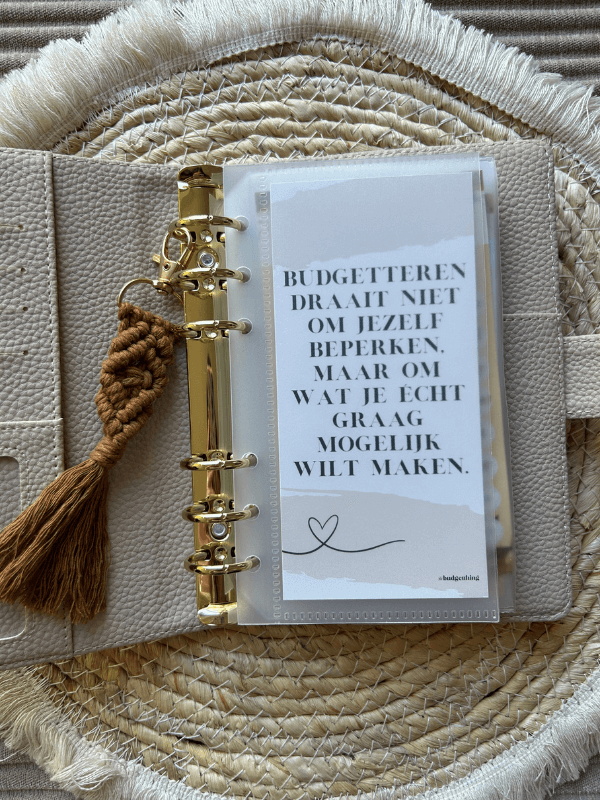 BUDGETTEREN
DRAAIT NIET
OM JEZELF
BEPERKEN,
MAAR OM
WAT JE ÉCHT
GRAAG
MOGELIJK
WILT MAKEN.
@budgething